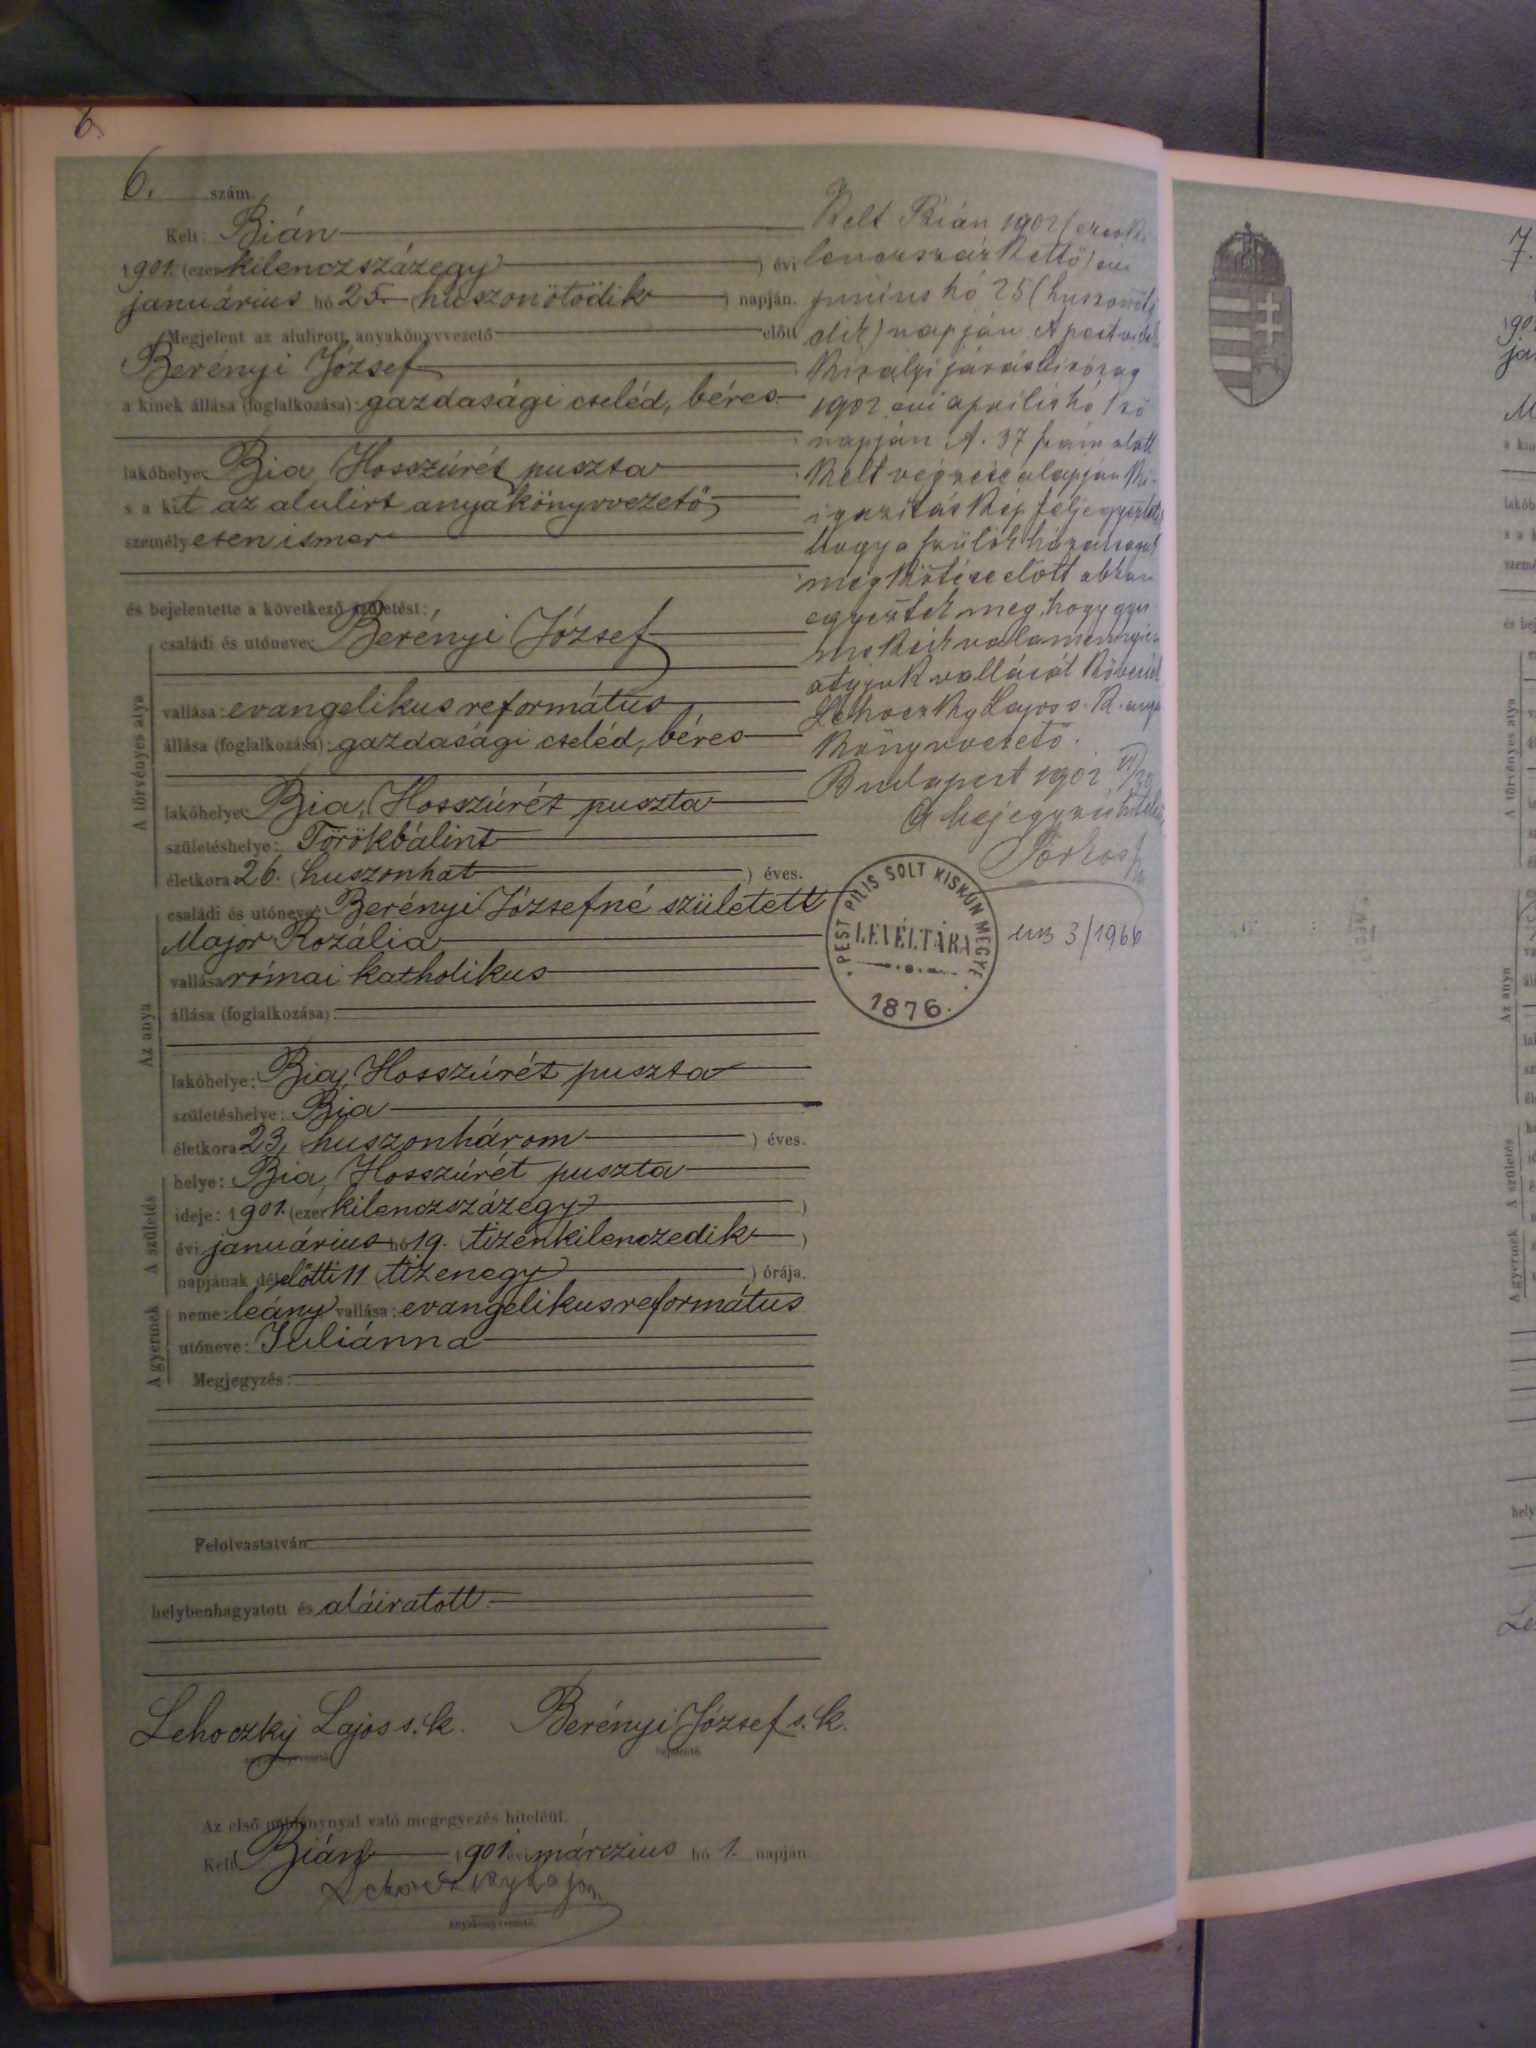 6.
6. szám.
Kelt: Bián
1901. (ezer kilenczszázegy ) évi
januárius hó 25. (huszonötödik ) napján.
Megjelent az alulirott anyakönyvvezető előtt
Berényi József
a kinek állása (foglalkozása): gazdasági cseléd, béres
lakóhelye: Bia, Hosszúrét puszta
s a kit az alulirt anyakönyvvezető
személyesen ismer
és bejelentette a következő születést:
A törvényes atya
családi és utóneve: Berényi József
vallása: evangelikus református
állása (foglalkozása): gazdasági cseléd, béres
lakóhelye: Bia, Hosszúrét puszta
születéshelye: Törökbálint
életkora 26. (huszonhat ) éves.
Az anya
családi és utóneve: Berényi Józsefné született
Major Rozália
vallása római katholikus
állása (foglalkozása):
lakóhelye: Bia, Hosszúrét puszta
születéshelye: Bia
életkora 23, (huszonhárom ) éves.
A születés
helye: Bia, Hosszúrét puszta
ideje: 1901. (ezer kilenczszázegy )
évi januárius hó 19. (tizenkilenczedik )
napjának délelőtti 11 (tizenegy ) órája.
A gyermek
neme: leány vallása: evangelikus református
utóneve: Juliánna
Megjegyzés:
Felolvastatván
helybenhagyatott és aláiratott
Lehoczky Lajos s. k. Berényi József s. k.
anyakönyvvezető bejelentő.
Az első példánynyal való megegyezés hiteléül.
Kelt Bián 1901. évi márczius hó 1. napján.
Lehoczky Lajos
anyakönyvvezető.
Kelt Bián 1902 (ezerki
lenczszázkettő) évi
június hó 25 (huszonötö
dik) napján. A pestvidéki
királyi járásbiróság
1902 évi április hó
napján A. 37 szám alatt
kelt végzése alapján ki-
igazításkép feljegyeztetik
hogy a szülők házasságuk
megkötése előtt abban
egyeztek meg, hogy gyer
mekeik valamennyien
atyjuk vallását követik
Lehoczky Lajos s. k. anya
könyvvezető.
Budapest 1902
A bejegyzés hiteléül
PEST PILIS SOLT KISKUN MEGYE
LEVÉLTÁRA
1876.
3/1966
7.